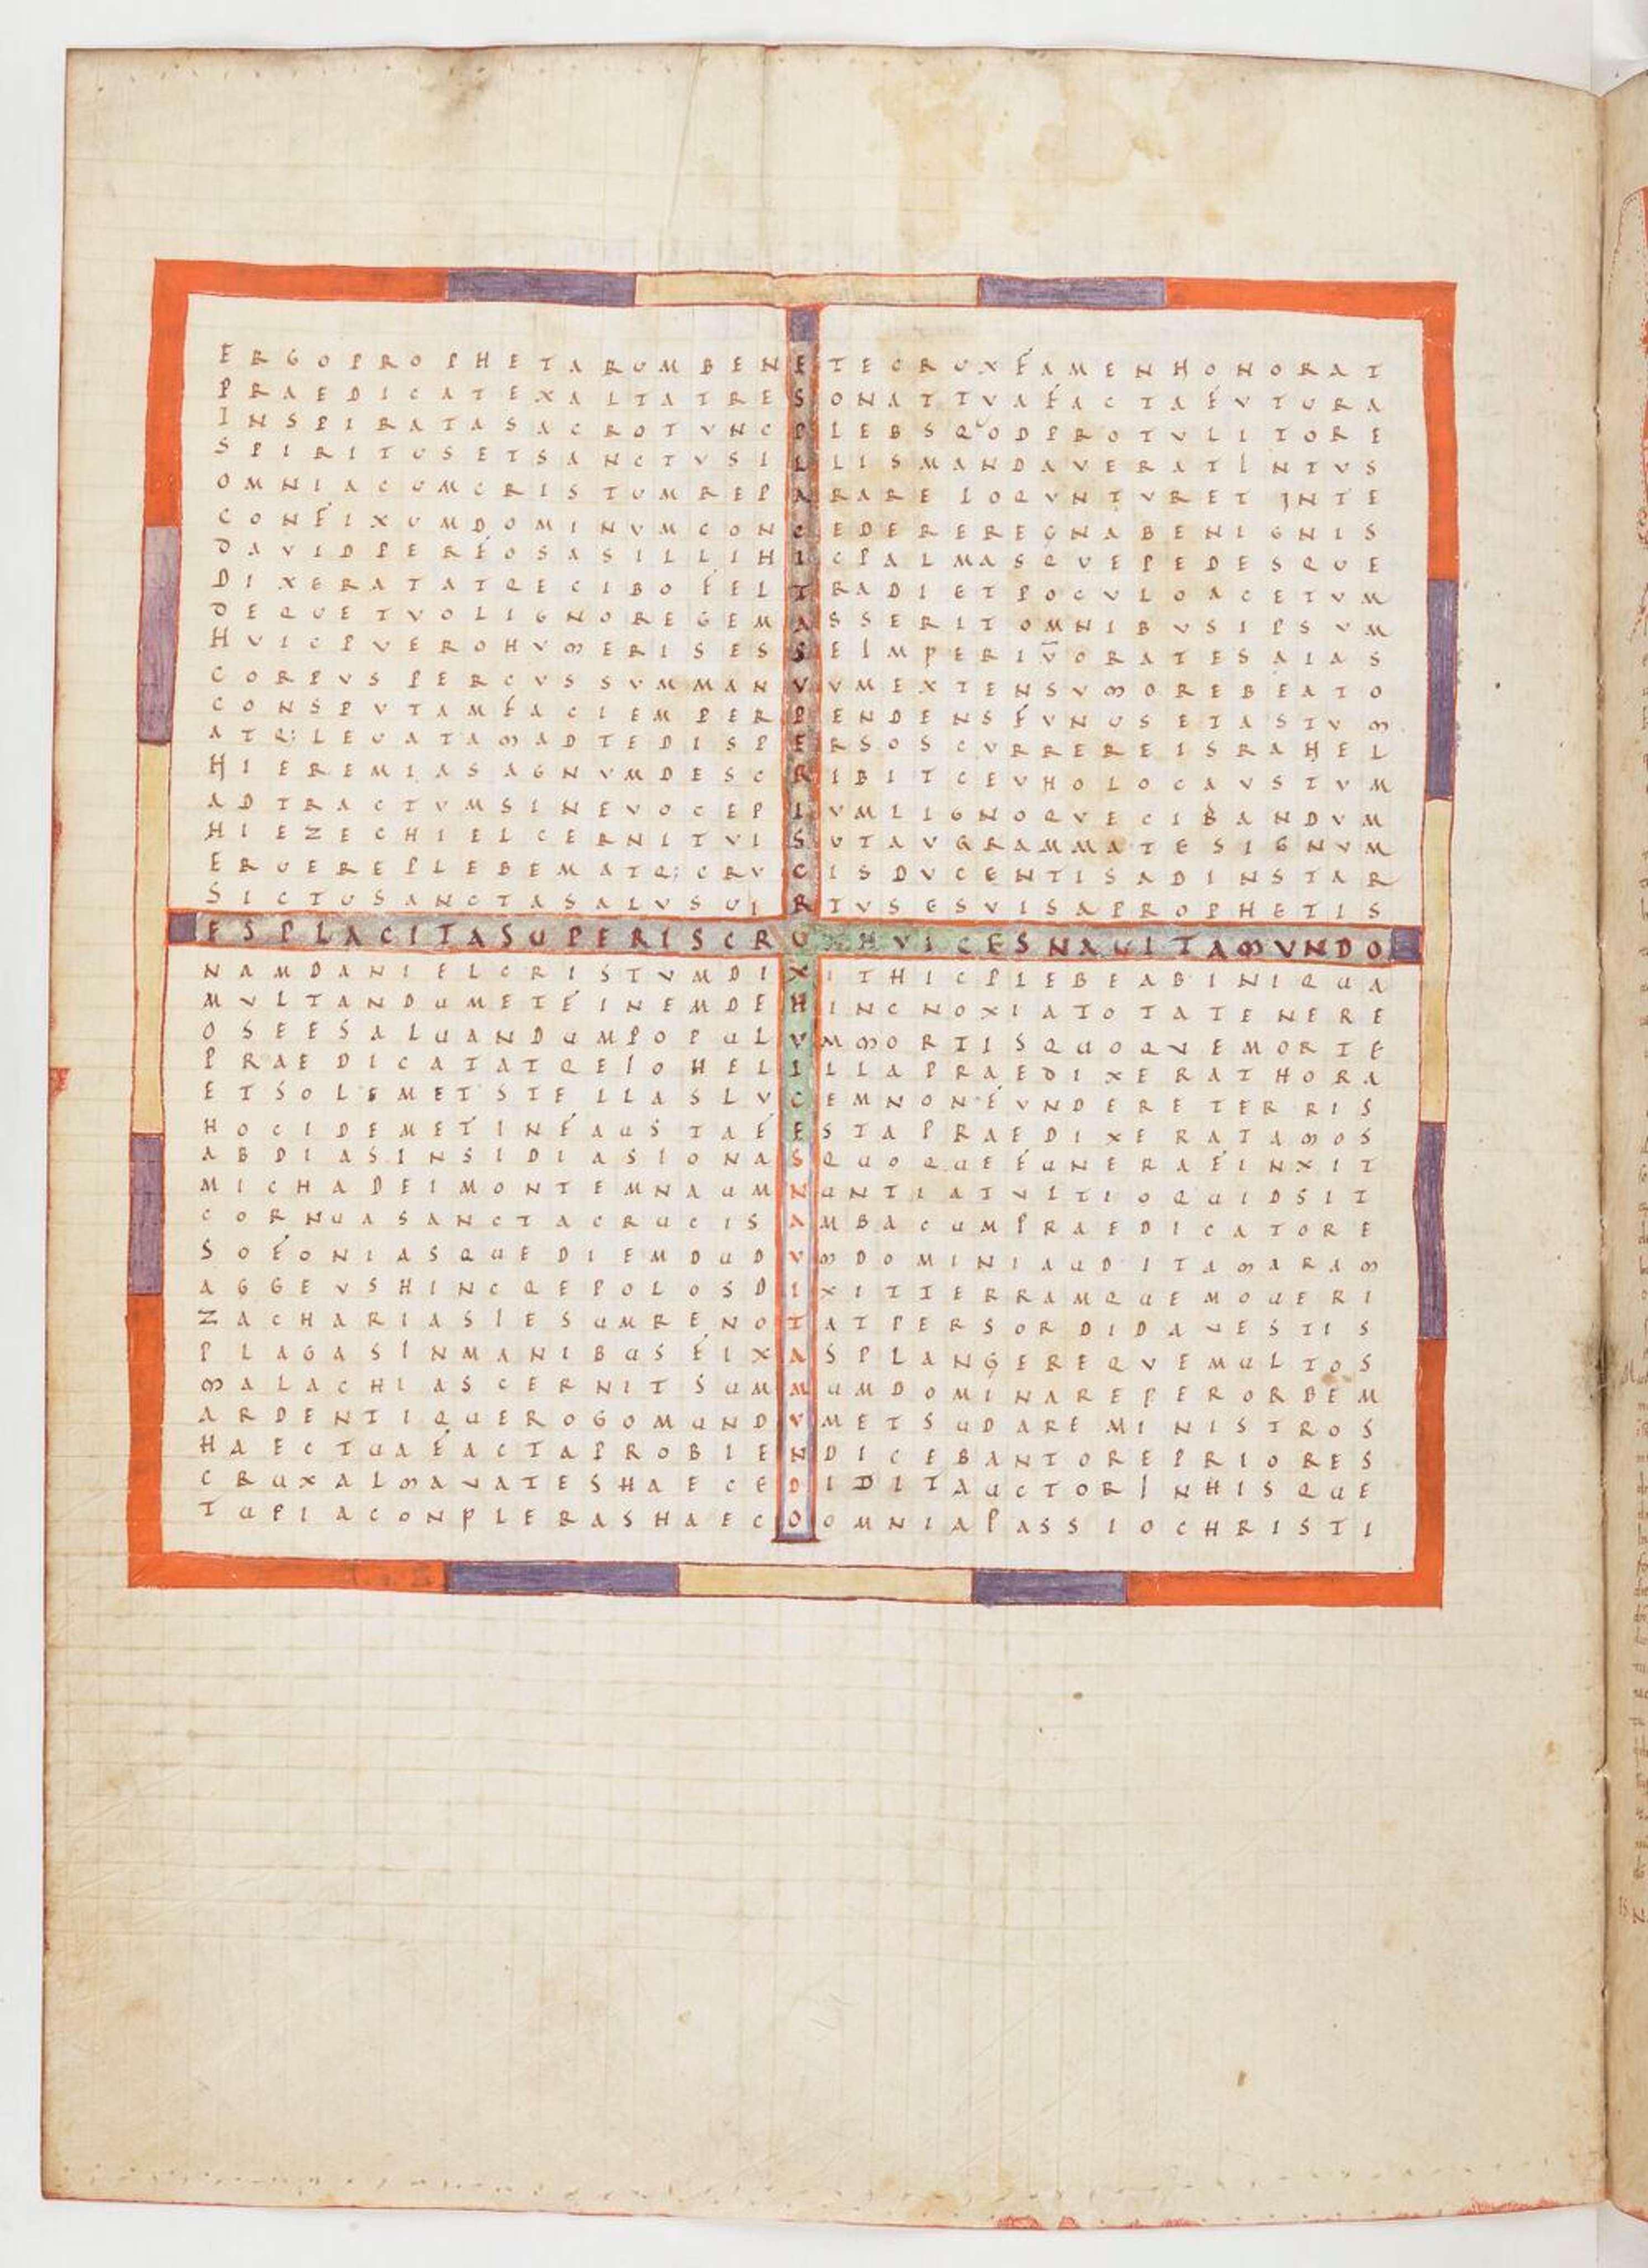 ERGOPROPHETARUMBENETECRUXFAMENHONORAT
PRAEDICATEXALTATRESONATTVAFACTAFVTURA
INSPIRATASACROTVNCPLEBSQODPROTVLITORE
SPIRITUSETSANCTVSILLISMANDAVERATINTVS
OMNIACUMCRISTUMREPARARELOQVNTVRETINTE
CONFIXUMDOMINVMCONCEDEREREGNABENIGNIS
DAVIDPERFOSASILLIHICPALMASQVEPEDESQUE
DIXERATATQECIBOFELTRADIETPOCVLOACETVM
DEQUETVOLIGNOREGEMASSERITOMNIBVSIPSVM
HVICPVEROHVMERISESSEIMPERIV̄ORATESAIAS
CORPVSPERCVSSVMMANVVMEXTENSVMOREBEATO
CONSPVTAMFACIEMPERPENDENSFVNUSETASTVM
ATQ:LEUATAMADTEDISPERSOSCVRREREISRAHEL
HIEREMIASAGNVMDESCRIBITCEVHOLOCAVSTVM
ADTRACTVMSINEVOCEPIVMLIGNOQVECIBANDVM
HIEZECHIELCERNITVISUTAVGRAMMATESIGNVM
ERUEREPLEBEMATQ:CRVCISDVCENTISADINSTAR
SICTUSANCTASALVSUIRTVSESVISAPROPHETIS
ESPLACITASUPERISCRUXHVICESNAUITAMVNDO
NAMDANIELCRISTVMDIXITHICPLEBEABINIQUA
MVLTANDUMETEFINEMDEHINCNOXIATOTATENERE
OSEESALUANDUMPOPULVMMORTISQUOQVEMORTE
PRAEDICATATQEIOHELILLAPRAEDIXERATHORA
ETSOLEMETSTELLASLVCEMNONFVNDERETERRIS
HOCIDEMETINFAUSTAFESTAPRAEDIXERATAMOS
ABDIASINSIDIASIONASQUOQUEFUNERAFINXIT
MICHADEIMONTEMNAUMNUNTIATVLTIOQUIDSIT
CORNUASANCTACRUCISAMBACUMPRAEDICATORE
SOFONIASQUEDIEMDUDVMDOMINIAUDITAMARAM
AGGEVSHINCQEPOLOSDIXITTERRAMQUEMOUERI
ZACHARIASIESUMRENOTATPERSORDIDAVESTIS
PLAGASINMANIBUSFIXASPLANGEREQVEMULTOS
MALACHIASCERNITSUMMUMDOMINAREPERORBEM
ARDENTIQUEROGOMUNDVMETSUDAREMINISTROS
HAECTUAFACTAPROBIENDICEBANTOREPRIORES
CRUXALMAVATESHAECEDIDITAUCTORINHISQUE
TUPIACONPLERASHAECOOMNIAPASSIOCHRISTI